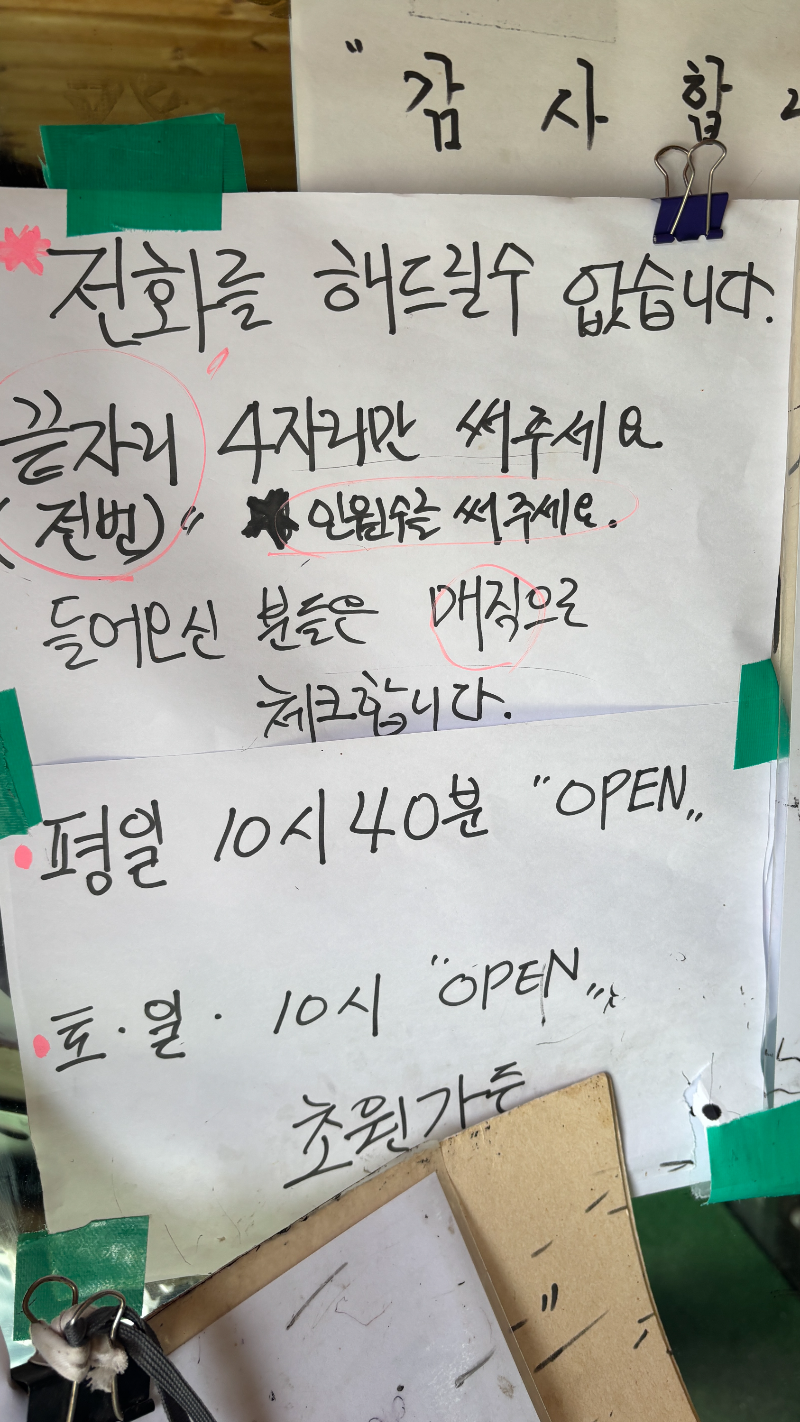 "감 사 합 니
전화를 해드릴수 없습니다.
끝자리 4자리만 써주세요
(전번)" 인원수를 써주세요.
들어오신 분들은 매직으로
체크합니다.
평일 10시 40분 "OPEN"
토·일· 10시 "OPEN"
초원가든